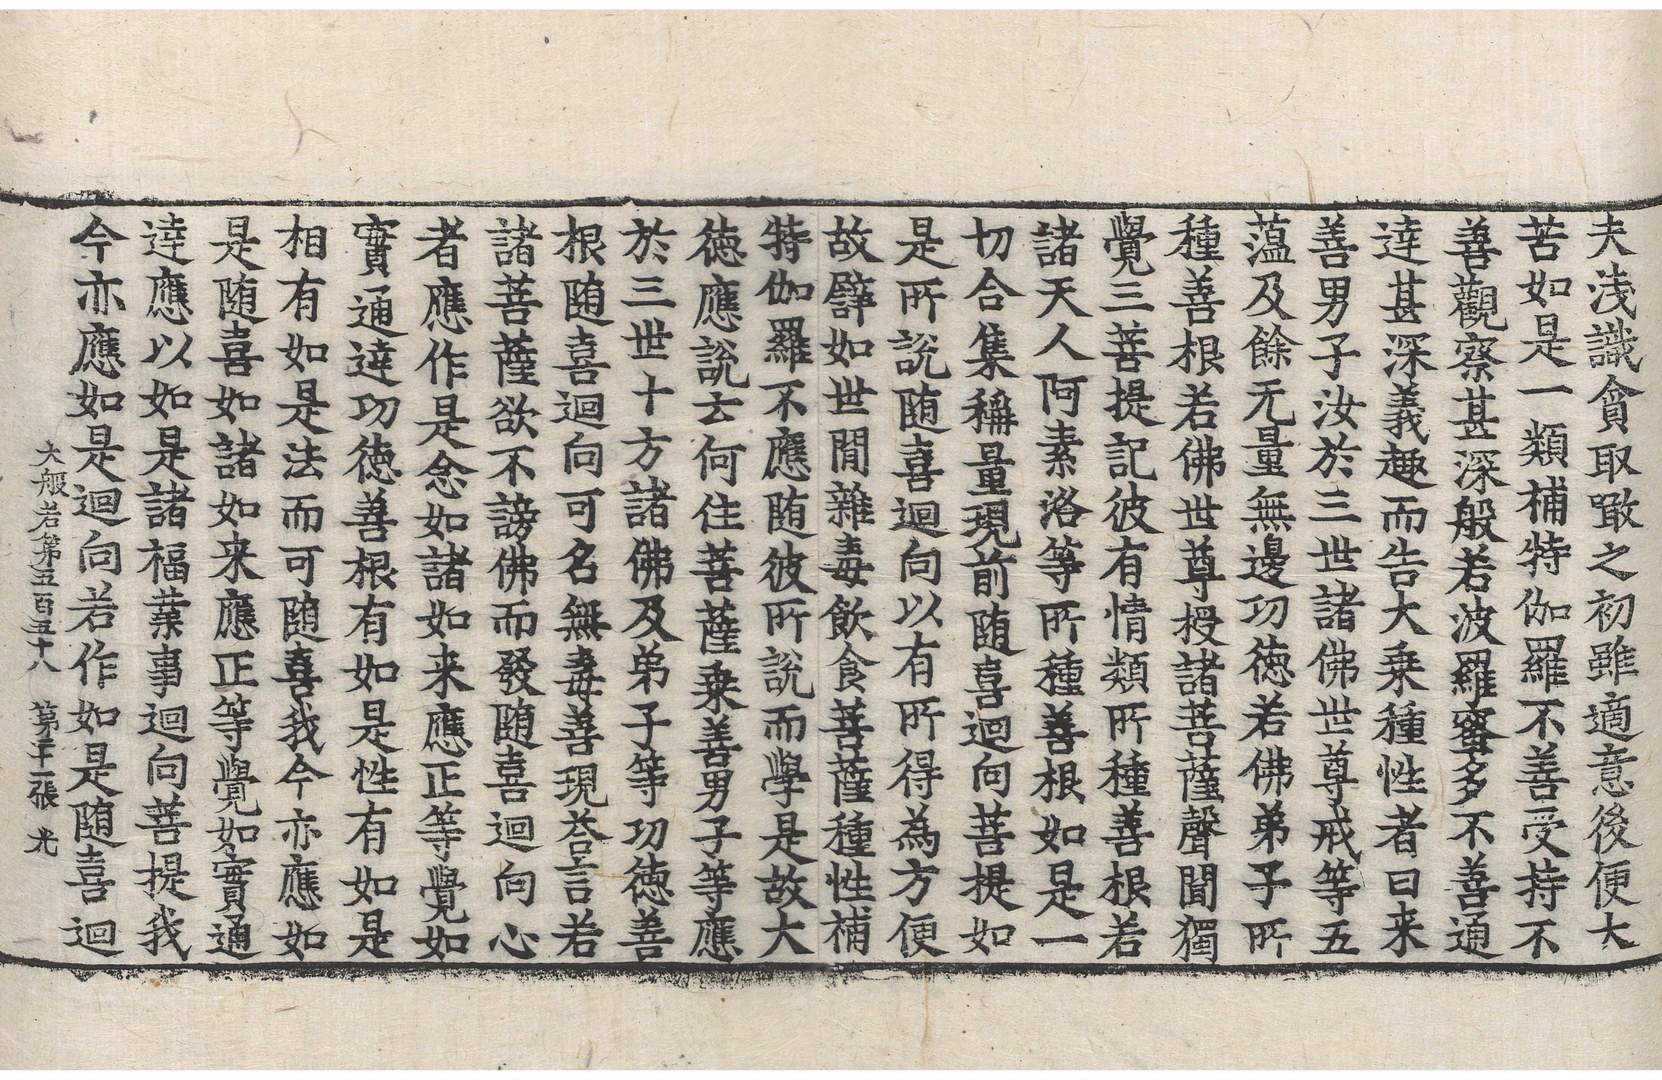 夫淺識貪取噉之初雖適意後便大
苦如是一類補特伽羅不善受持不
善觀察甚深般若波羅蜜多不善通
達甚深義趣而告大乗種性者曰来
善男子汝於三世諸佛世尊戒等五
蕰及餘无量無邊功徳若佛弟子所
種善根若佛世尊授諸菩薩聲聞獨
覺三菩提記彼有情類所種善根若
諸天人阿素洛等所種善根如是一
切合集稱量現前随喜迴向菩提如
是所說随喜迴向以有所得為方便
故譬如世間雜毒飲食菩薩種性補
特伽羅不應随彼所說而學是故大
徳應說云何住菩薩乗善男子等應
於三世十方諸佛及弟子等功徳善
根随喜迴向可名無毒善現荅言若
諸菩薩欲不謗佛而發随喜迴向心
者應作是念如諸如来應正等覺如
實通達功徳善根有如是性有如是
相有如是法而可随喜我今亦應如
是随喜如諸如来應正等覺如實通
達應以如是諸福業事迴向菩提我
今亦應如是迴向若作如是随喜迴
大般若第五百五十八 第二十一張 光